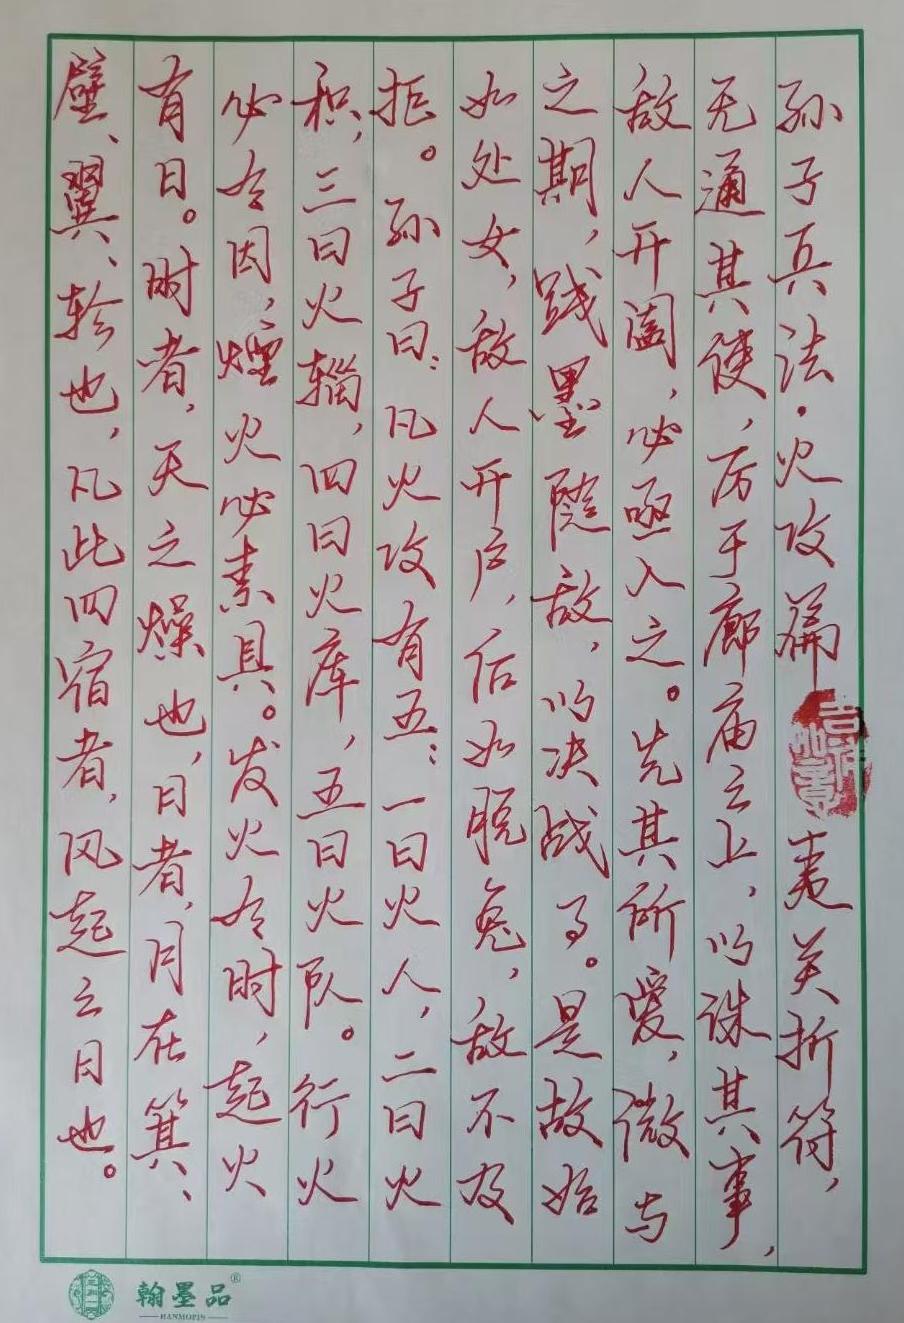 孙子兵法·火攻篇 夷关折符，
无通其使，厉于廊庙之上，以诛其事，
敌人开阖，必亟入之。先其所爱，微与
之期，践墨随敌，以决战事。是故始
如处女，敌人开户，后如脱兔，敌不及
拒。孙子曰：凡火攻有五：一曰火人，二曰火
积，三曰火辎，四曰火库，五曰火队。行火
必有因，煙火必素具。发火有时，起火
有日。时者，天之燥也，日者，月在箕、
壁、翼、轸也，凡此四宿者，风起之日也。
吉祥如意
翰墨品®
HANMOPIN